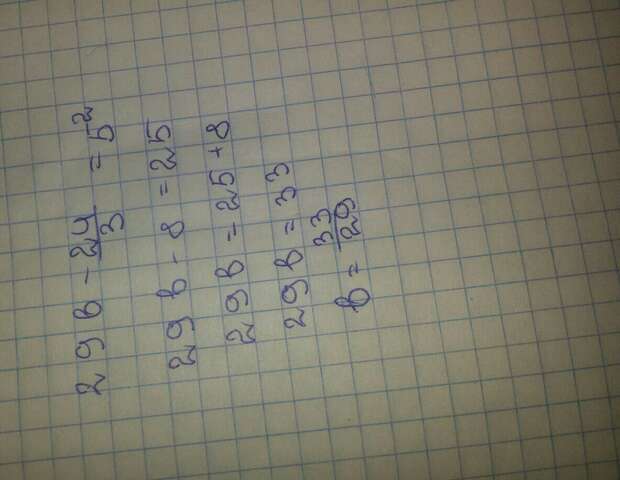 29b - 24/3 = 5²
29b - 8 = 25
29b = 25 + 8
29b = 33
b = 33/29